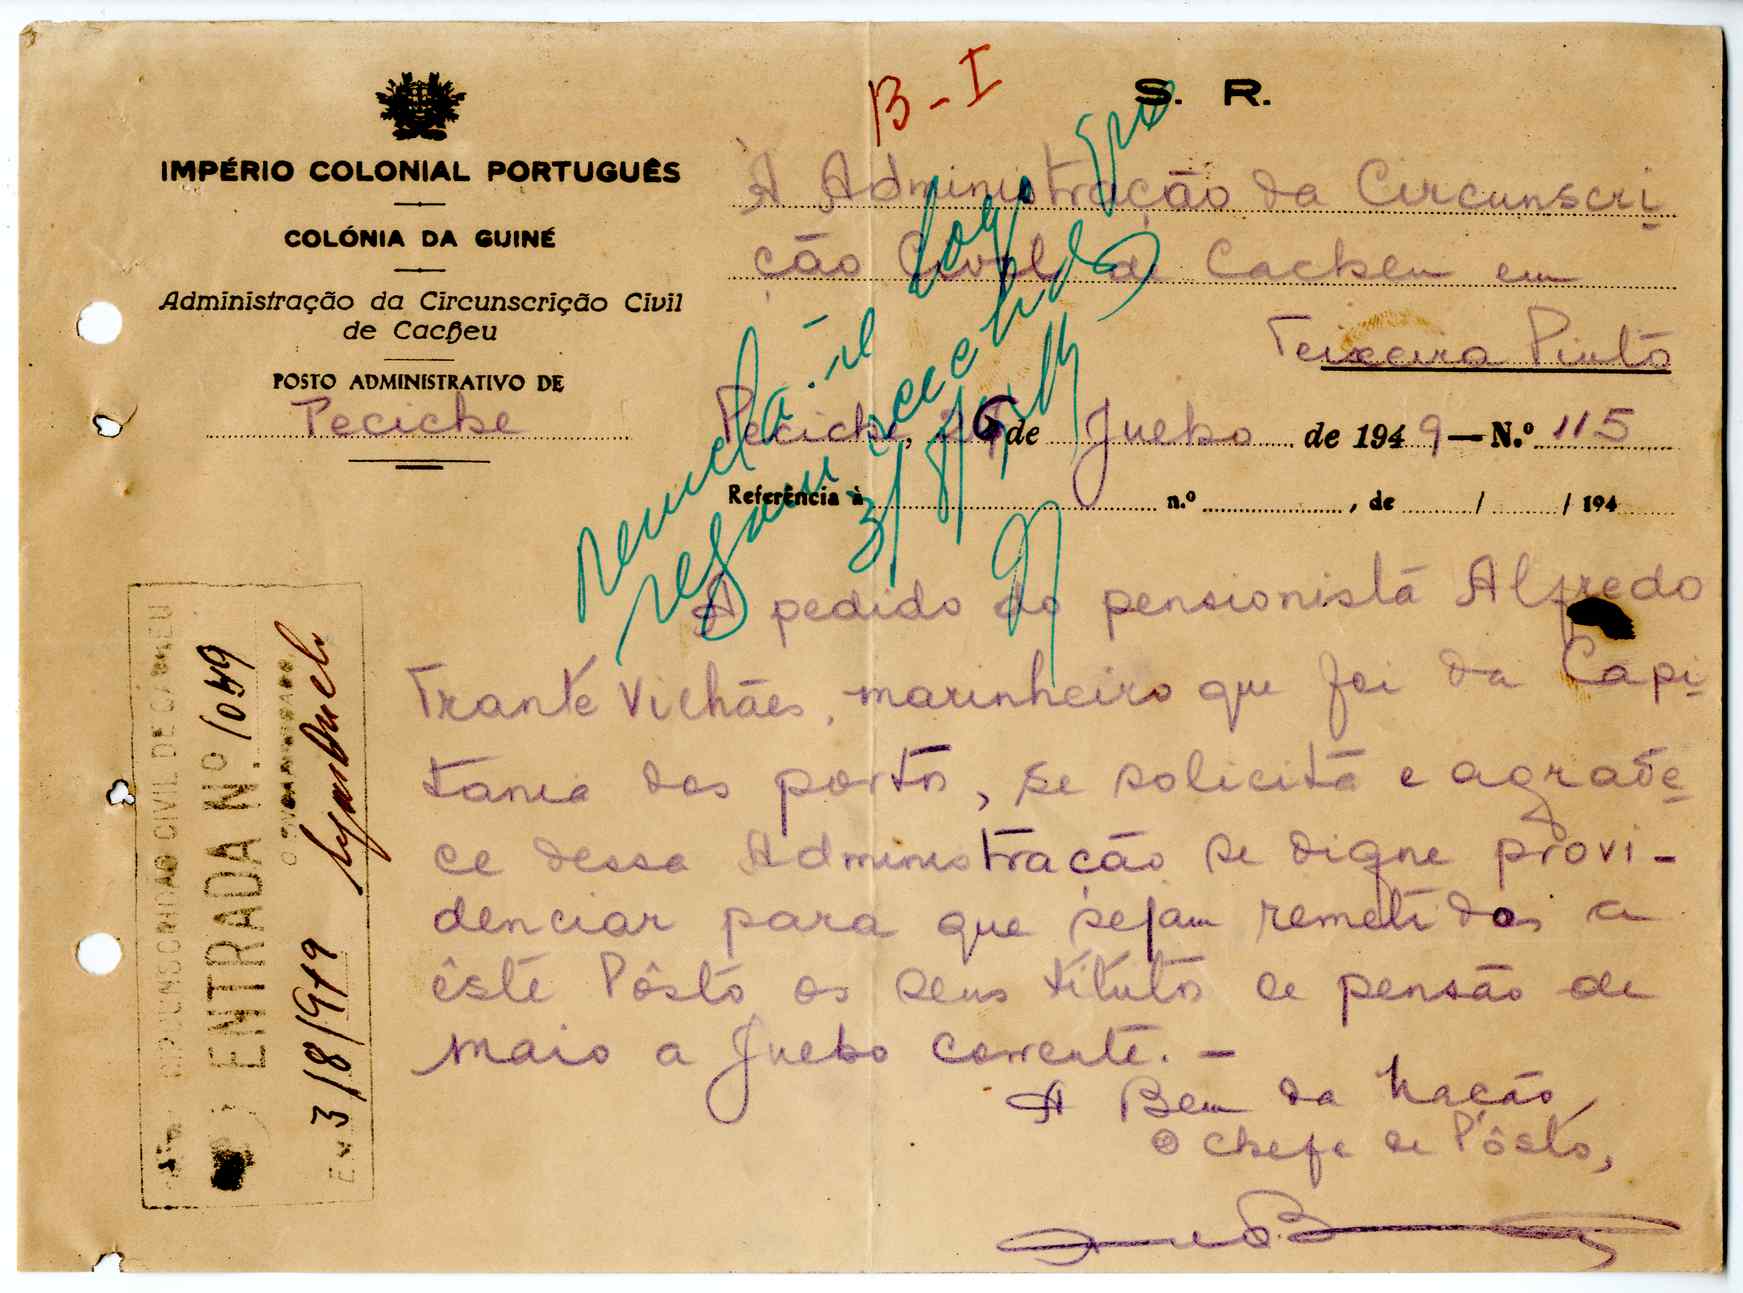 B-I
S. R.
IMPÉRIO COLONIAL PORTUGUÊS
COLÓNIA DA GUINÉ
Administração da Circunscrição Civil
de Cacheu
POSTO ADMINISTRATIVO DE
Peciche
À Administração da Circunscri
ção Civil de Cacheu em
Teixeira Pinto
Peciche, 26 de Julho de 1949 — N.º 115
Referência à n.º , de / / 194
remeta-se logo que
sejam recebidos
3/8/949
A pedido do pensionista Alfredo
Trante Vilhães, marinheiro que foi da Capi
tania dos portos, se solicita e agrade
ce dessa Administração se digne provi-
denciar para que sejam remetidos a
êste Pôsto os seus titulos de pensão de
Maio a Julho corrente. —
A Bem da Nação
O Chefe de Pôsto,
CIRCUNSCRIÇÃO CIVIL DE CACHEU
ENTRADA N.º 1049
O ENCARREGADO
EM 3/8/949